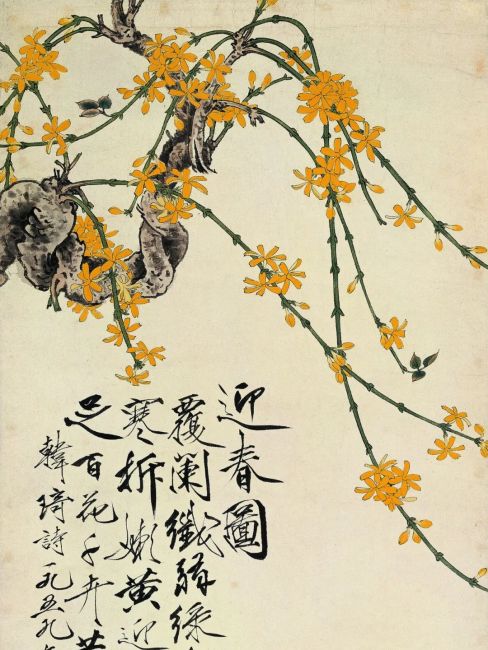 迎春圖
覆闌纖弱綠
寒折嫩黃迎
足百花千卉
韓琦詩一九五九